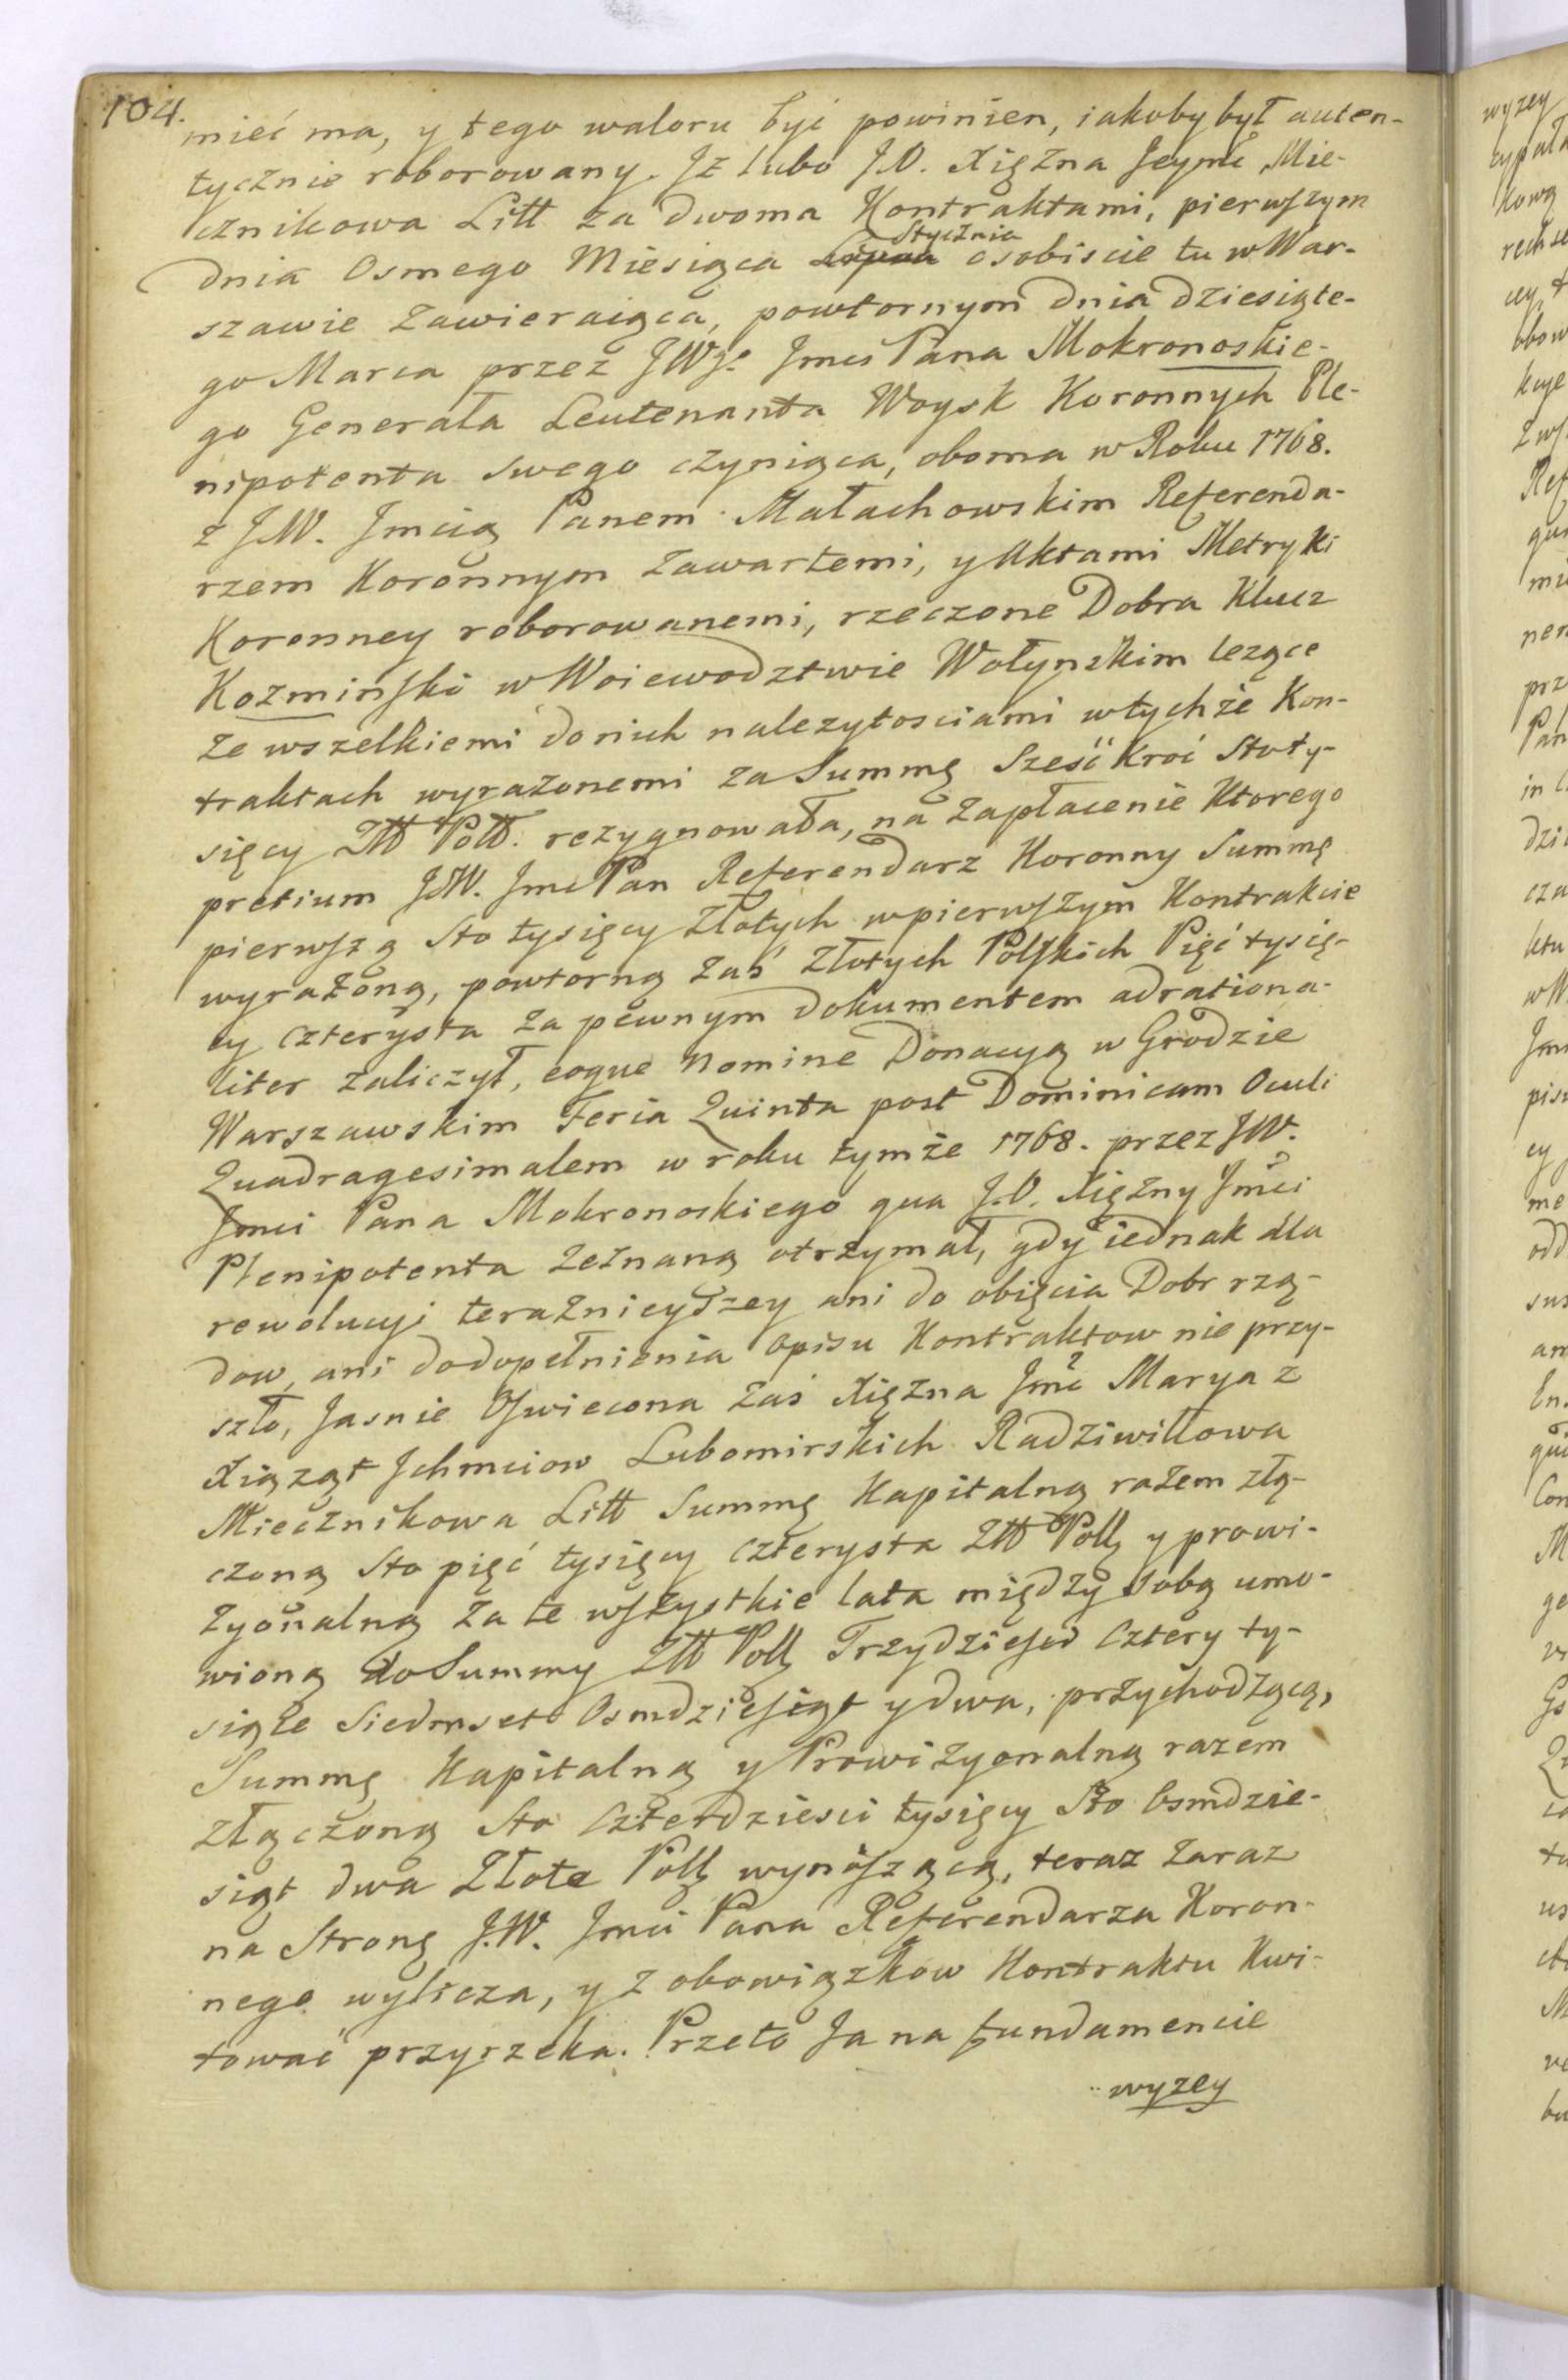 104.
mieć ma, y tego waloru być powinien, iakoby był auten-
tycznie roborowany. Jż lubo J.O. Xiężna Jeymć Mie-
cznikowa Litt za dwoma Kontraktami, pierwszym
dnia Osmego Miesiąca Lipca Stycznia osobiscie tu w War-
szawie Zawieraiąca, powtornym dnia dziesiąte-
go Marca przez JWgo Jmci Pana Mokronoskie-
go Generała Leutenanta Woysk Koronnych Ple-
nipotenta swego czyniąca, oboma w Roku 1768.
z J.W. Jmcią Panem Małachowskim Referenda-
rzem Koronnym Zawartemi, y Aktami Metryki
Koronney roborowanemi, rzeczone Dobra Klucz
Kozminski w Woiewodztwie Wołynskim lezące
Ze wszelkiemi do nich nalezytosciami w tychże Kon-
traktach wyrażonemi za Summę Sześć Kroć Stoty-
sięcy Złł Poll. rezygnowała, na Zapłacenie Ktorego
pretium J.W. Jmć Pan Referendarz Koronny Summę
pierwszą Sto tysięcy Złotych w pierwszym Kontrakcie
wyrażoną, powtorną Zaś Złotych Polskich Pięć tysię-
cy czterysta Za pewnym dokumentem adrationa-
liter Zaliczył, eoque nomine Donacyą w Grodzie
Warszawskim Feria Quinta post Dominicam Oculi
Quadragesimalem w roku tymże 1768. przez J.W.
Jmci Pana Mokronoskiego qua J.O. Xiężny Jmci
Plenipotenta Zeżnaną otrzymał, gdy iednak dla
rewolucyi teraźnieyszey ani do obięcia Dobr rzą-
dow, ani do dopełnienia opisu Kontraktow nie przy-
szło, Jasnie Oswiecona Zaś Xiężna Jmć Marya z
Xiążąt Jchmciow Lubomirskich Radziwiłłowa
Miecznikowa Litt Summę Kapitalną rażem złą-
czoną Sto pięć tysięcy czterysta Złł Poll y prowi-
zyonalną Za te wszystkie lata między sobą umo-
wioną do Summy Złł Poll Trzydzieści cztery ty-
siące Siedmset Osmdziesiąt y dwa, przychodzącą,
Summę Kapitalną y Prowizyonalną razem
złączoną Sto Czterdziesci tysięcy Sto Osmdzie-
siąt dwa Złote Poll wynoszącą, teraz Zaraz
na Stronę J.W. Jmci Pana Referendarza Koron-
nego wylicza, y z obowiązkow Kontraktu Kwi-
tować przyrzeka. Przeto Ja na fundamencie
wyzey